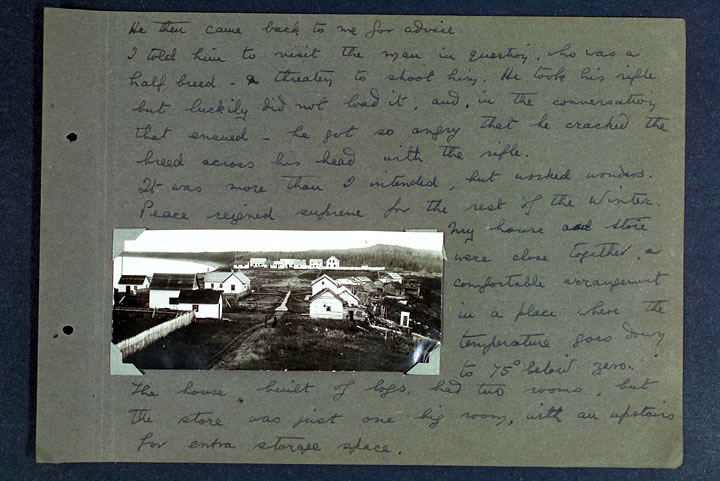 He then came back to me for advice.
I told him to visit the man in question, who was a
half breed - & threaten to shoot him. He took his rifle
but luckily did not load it, and, in the conversation
that ensued - he got so angry that he cracked the
breed across his head with the rifle.
It was more than I intended, but worked wonders.
Peace reigned supreme for the rest of the Winter.
My house and store
were close together, a
comfortable arrangement
in a place where the
temperature goes down
to 75° below zero.
The house, built of logs, had two rooms, but
the store was just one big room, with an upstairs
for extra storage space.